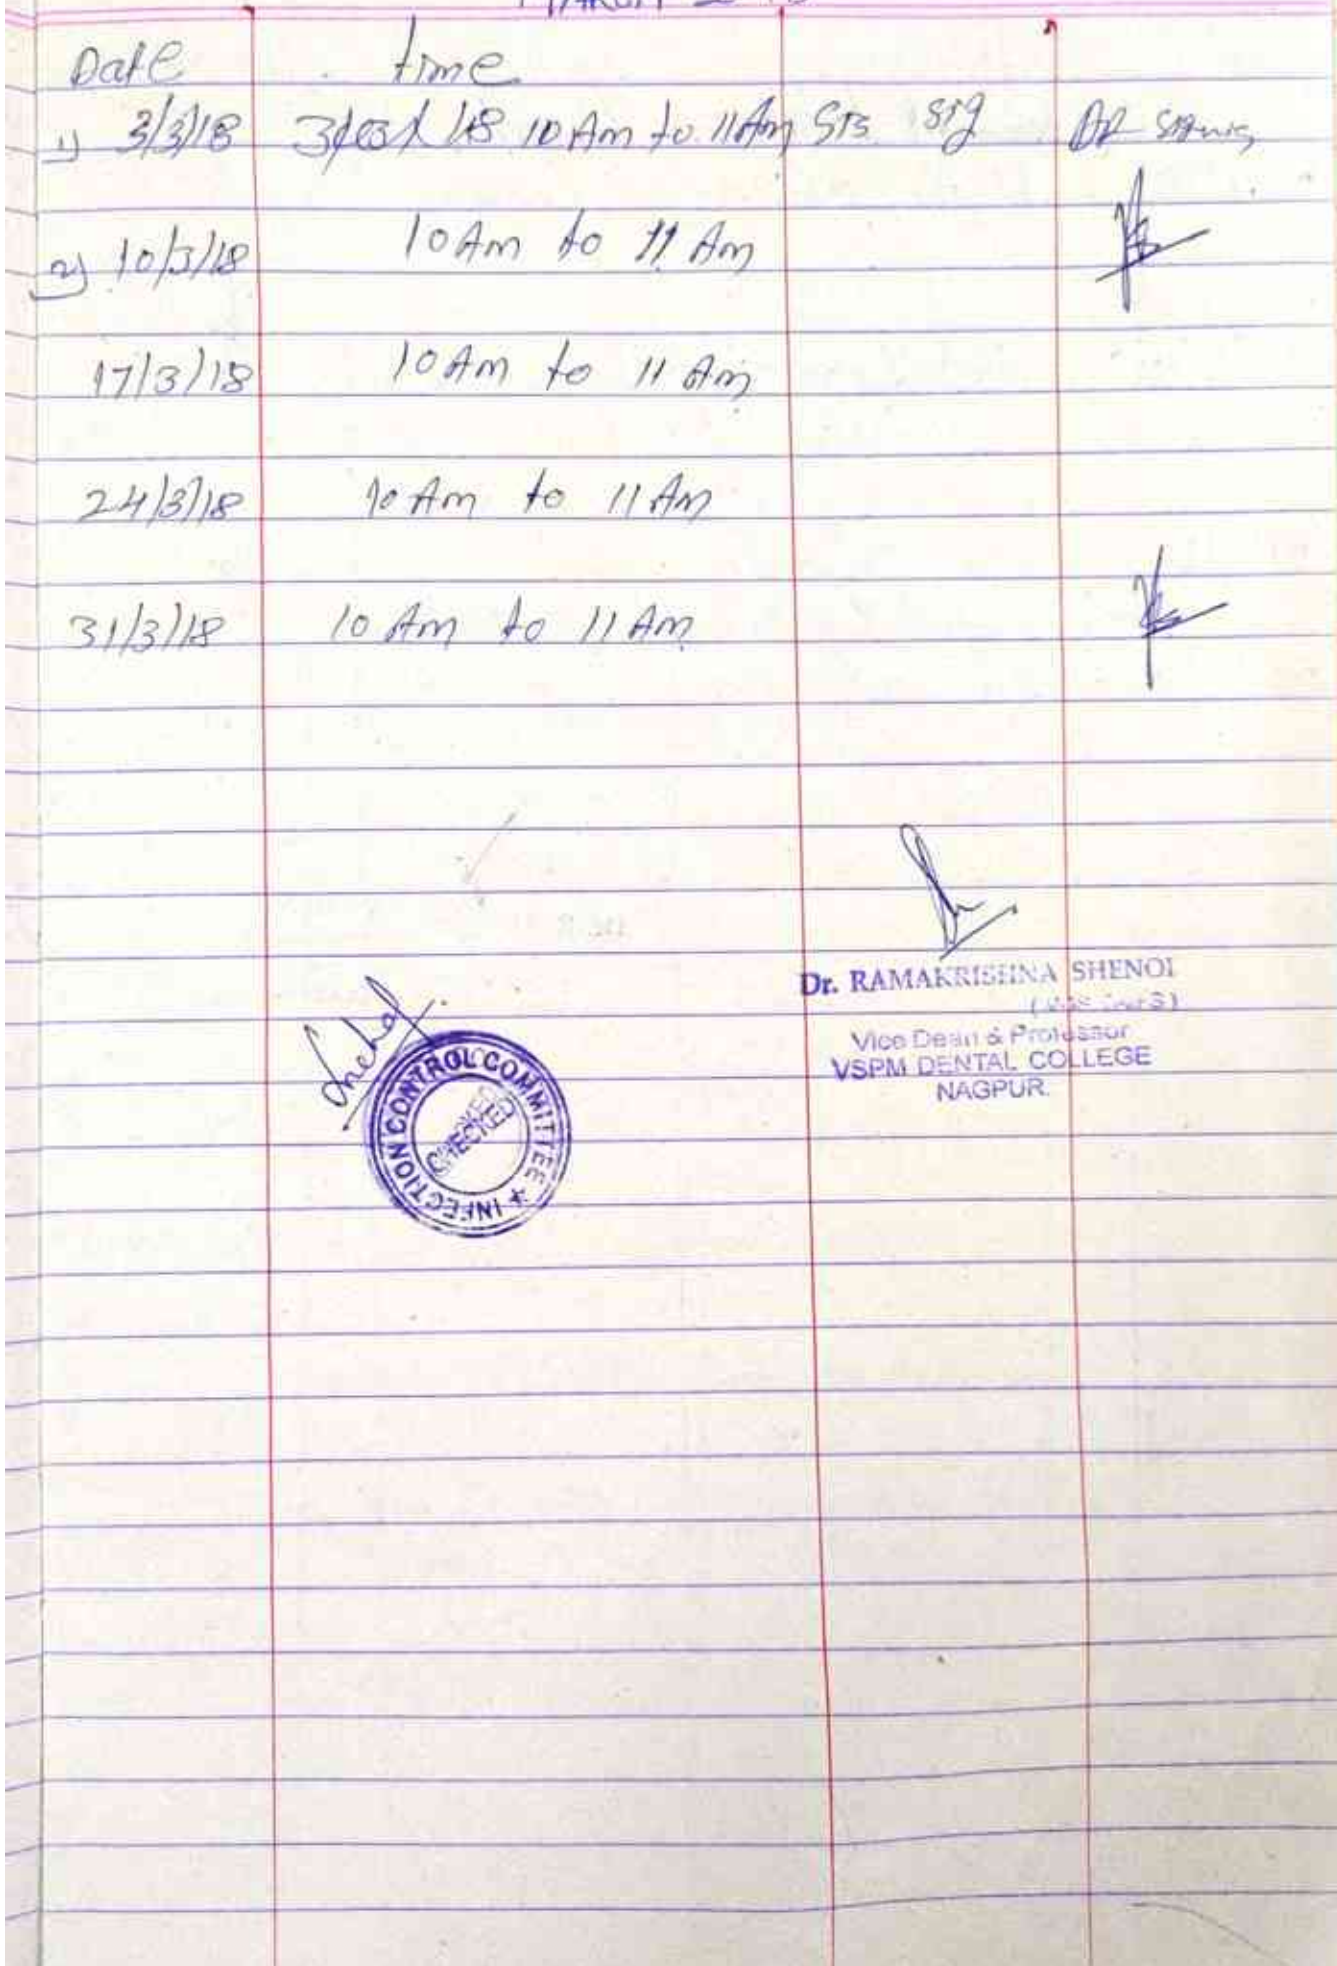 MARCH
Date time
1) 3/3/18 10 Am to 11 Am Sis sig DR
2) 10/3/18 10 Am to 11 Am
17/3/18 10 Am to 11 Am
24/3/18 10 Am to 11 Am
31/3/18 10 Am to 11 Am
Dr. RAMAKRISHNA SHENOI
Vice Dean & Professor
VSPM DENTAL COLLEGE
NAGPUR.
Snehal
INFECTION CONTROL COMMITTEE
CHECKED